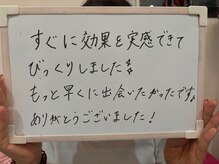 すぐに効果を実感できて
びっくりしました!!
もっと早くに出会いたかったです。
ありがとうございました!